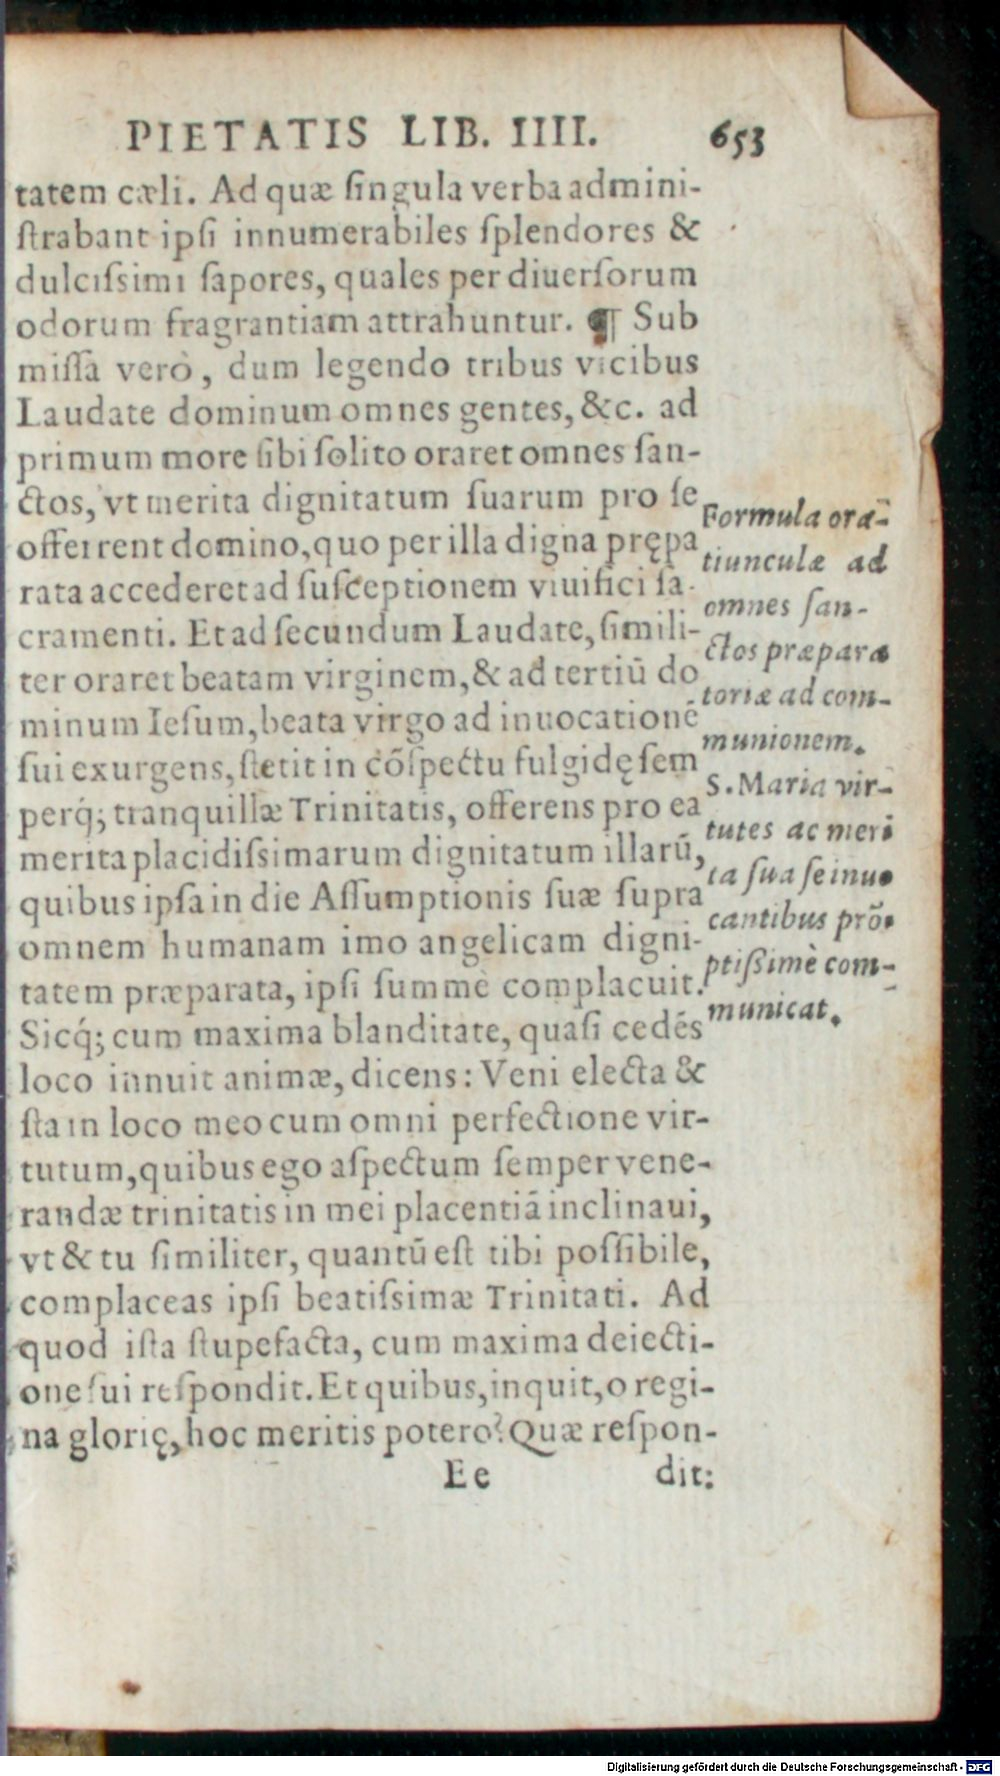 PIETATIS LIB. IIII. 653
tatem cæli. Ad quæ ſingula verba admini-
ſtrabant ipſi innumerabiles ſplendores &
dulciſsimi ſapores, quales per diuerſorum
odorum fragrantiam attrahuntur. ¶ Sub
miſſa verò, dum legendo tribus vicibus
Laudate dominum omnes gentes, &c. ad
primum more ſibi ſolito oraret omnes ſan-
ctos, vt merita dignitatum ſuarum pro ſe
offerrent domino, quo per illa digna prępa
rata accederet ad ſuſceptionem viuifici ſa-
cramenti. Et ad ſecundum Laudate, ſimili-
ter oraret beatam virginem, & ad tertiū do
minum Ieſum, beata virgo ad inuocationē
ſui exurgens, ſtetit in cõſpectu fulgidę ſem
perq́; tranquillæ Trinitatis, offerens pro ea
merita placidiſsimarum dignitatum illarū,
quibus ipſa in die Aſſumptionis ſuæ ſupra
omnem humanam imo angelicam digni-
tatem præparata, ipſi ſummè complacuit.
Sicq́; cum maxima blanditate, quaſi cedēs
loco innuit animæ, dicens: Veni electa &
ſta in loco meo cum omni perfectione vir-
tutum, quibus ego aſpectum ſemper vene-
randæ trinitatis in mei placentiã inclinaui,
vt & tu ſimiliter, quantū eſt tibi poſſibile,
complaceas ipſi beatiſsimæ Trinitati. Ad
quod iſta ſtupefacta, cum maxima deiecti-
one ſui reſpondit. Et quibus, inquit, o regi-
na glorię, hoc meritis potero? Quæ reſpon-
Ee dit:
Formula ora-
tiunculæ ad
omnes ſan-
ctos præpara
toriæ ad com-
munionem.
S. Maria vir-
tutes ac meri
ta ſua ſe inuo
cantibus prõ-
ptiſsimè com-
municat.
Digitalisierung gefördert durch die Deutsche Forschungsgemeinschaft - DFG